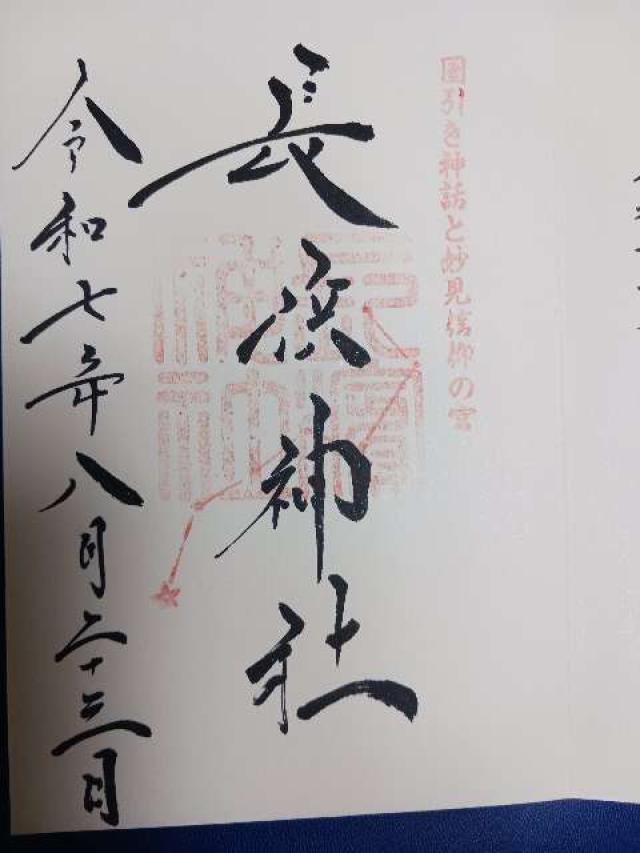 國引き神話と妙見信仰の宮
長浜神社
令和七年八月二十三日